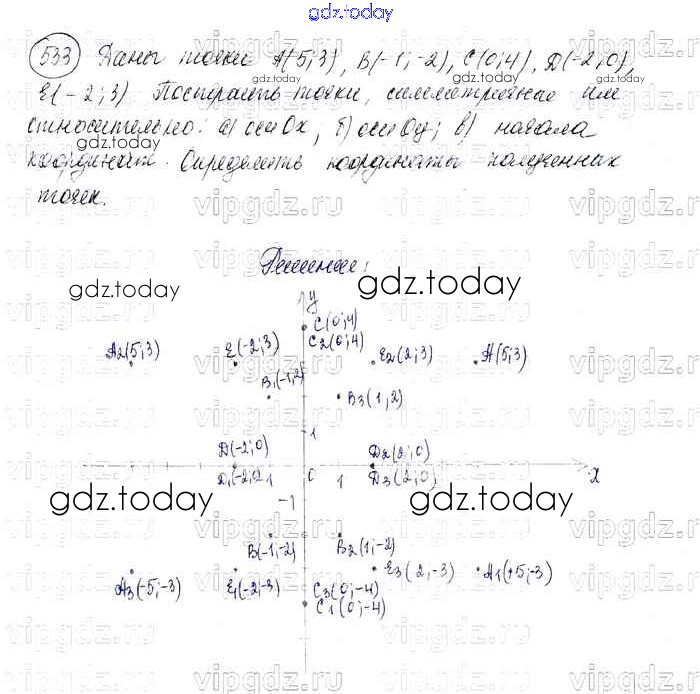 gdz.today
533 Даны точки A(5;3), B(-1;-2), C(0;4), D(-2;0),
E(-2;3) Построить точки, симметричные им
относительно: а) оси Ox; б) оси Oy; в) начала
координат. Определить координаты полученных
точек.
Решение:
y
C(0;4)
C2(0;4)
A2(5;3) E(-2;3) E2(2;3) A(5;3)
B1(-1,2) B3(1,2)
1
D(-2;0) D2(2;0)
D1(-2;0) 1 0 1 D3(2;0) x
-1
B(-1;-2) B2(1;-2)
A3(-5;-3) E1(-2;-3) E3(2;-3) A1(+5;-3)
C3(0;-4)
C1(0;-4)
gdz.today
gdz.today
gdz.today
gdz.today
vipgdz.ru